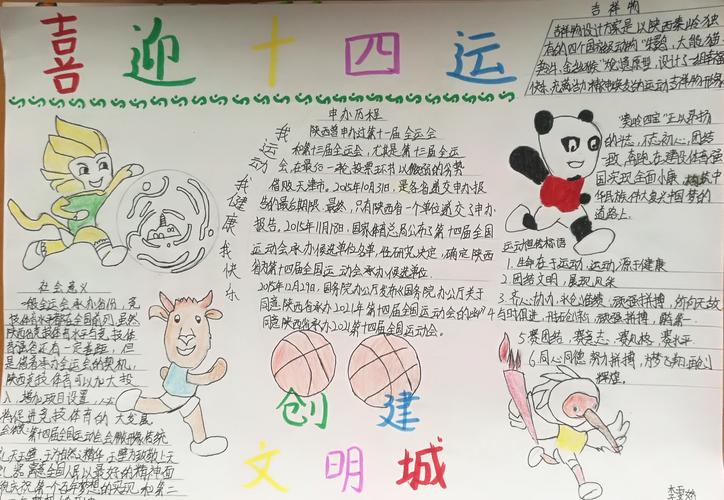 喜迎十四运
吉祥物
吉祥物设计方案是以陕西秦岭独
有的四个国宝级动物“朱鹮、大熊猫、
羚牛、金丝猴”
申办历程
陕西曾申办过第十一届全运会
和第十三届全运会，尤其是第十三届全运
会，在最后一轮投票环节以微弱的劣势
惜败天津市。2015年10月31日，是各省递交申办报
告的最后期限，最终，只有陕西省一个单位递交了申办
报告。2015年11月18日，国家体育总局公布了第十四届全国
运动会承办候选单位名单，经研究决定，确定陕西
省为第十四届全国运动会承办候选单位
2015年12月29日，国务院办公厅发布《国务院办公厅关于
同意陕西省承办2021年第十四届全国运动会的函》
同意陕西省承办2021第十四届全国运动会。
我运动我健康我快乐
“秦岭四宝”正以昂扬
的斗志，不忘初心，团结一
致，奔跑在建设体育强
国实现全面小康，
华民族伟大复兴中国梦的
道路上。
运动宣传标语
1.生命在于运动，运动源于健康
2.团结文明，展现风采
3.齐心协力
4.与时俱进，开拓创新，顽强拼搏，勇争第一
5.赛团结，赛意志，赛风格，赛水平
6.同心同德，努力拼搏，放飞梦想，再创
辉煌。
社会意义
一般全运会承办省份，竞
技体育水平都在全国前列，虽然
陕西省竞技体育水平与竞技体
育强省还有一定差距，但
是借着承办全运会的契机，
陕西竞技体育可以加大投
入，增加项目设置，
促进竞技体育的大发展
第十四届全国运动会
创建
文明城